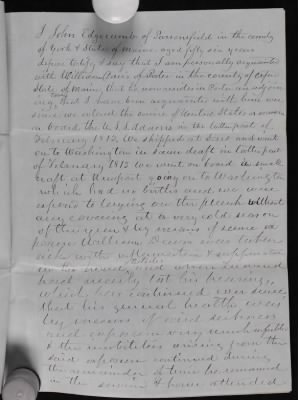 I John Edgecomb of Parsonsfield in the county
of York & State of Maine aged fifty six years
depose testify & say that I am personally acquainted
with William Davis of Porter in the county of Oxford
State of Maine, that he now resides in Porter an adjoin
ing town that I have been acquainted with him ever
since we entered the service of United States as seamen
on board the U.S. in the latter part of
February 1813, we shipped at and went
on to Washington in same draft in latter part
of February 1813 we went on board a small
craft at Newport going on to Washington
which had no births and we were
exposed to lying on the without
any covering at a very cold season
of the year & by means of same ex
posure William Davis was taken
sick with inflamation & suppuration
in his head, which
him
which has continued ever since,
that his general health was
by means of said sickness
and exposure very much impaired
& the arising from the
said exposure continued during
the remainder of time he remained
in the service & have attended